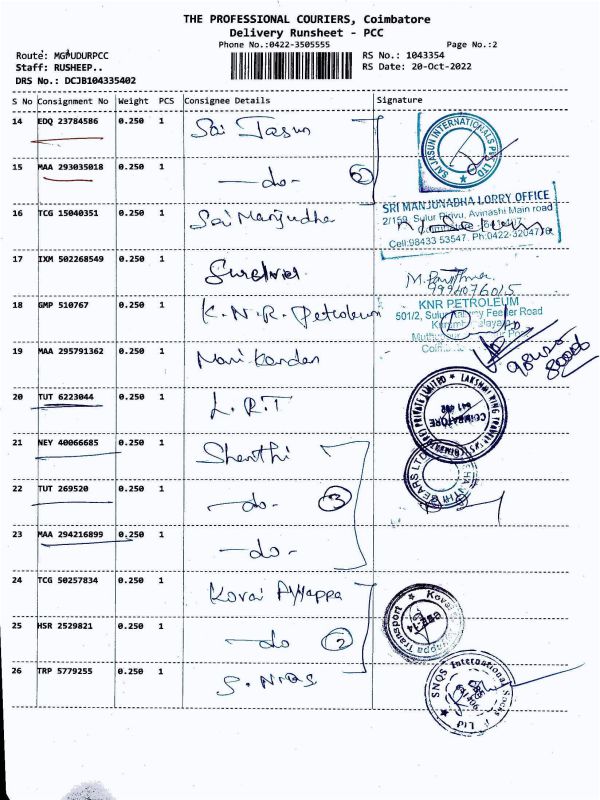 THE PROFESSIONAL COURIERS, Coimbatore
Delivery Runsheet - PCC
Phone No.:0422-3505555
Page No.:2
Route: MGPUDURPCC
RS No.: 1043354
Staff: RUSHEEP..
RS Date: 20-Oct-2022
DRS No.: DCJB104335402
S No Consignment No Weight PCS Consignee Details Signature
14 EDQ 23784586 0.250 1 Sai Jasun
SAI JASUN INTERNATIONALS PVT LTD
15 MAA 293035018 0.250 1 -do-
SRI MANJUNADHA LORRY OFFICE
2/159, Sulur Pirivu, Avinashi Main road
Cell:98433 53547. Ph:0422-3204778
16 TCG 15040351 0.250 1 Sri Manjudha
17 IXM 502268549 0.250 1
9994076015
18 GMP 510767 0.250 1 K.N.R. Petroleum
KNR PETROLEUM
501/2, Sulur Railway Feeder Road
19 MAA 295791362 0.250 1 Manikandan
20 TUT 6223044 0.250 1 L.R.T
COIMBATORE
641 402
21 NEY 40066685 0.250 1 Shanthi
SHANTHI GEARS LTD
22 TUT 269520 0.250 1 -do- 3
23 MAA 294216899 0.250 1 -do-
24 TCG 50257834 0.250 1 Kovai Ayyappa
Kovai Ayyappa Transport
25 HSR 2529821 0.250 1 -do 2
26 TRP 5779255 0.250 1 S.NIQS
SNQS International Socks P Ltd